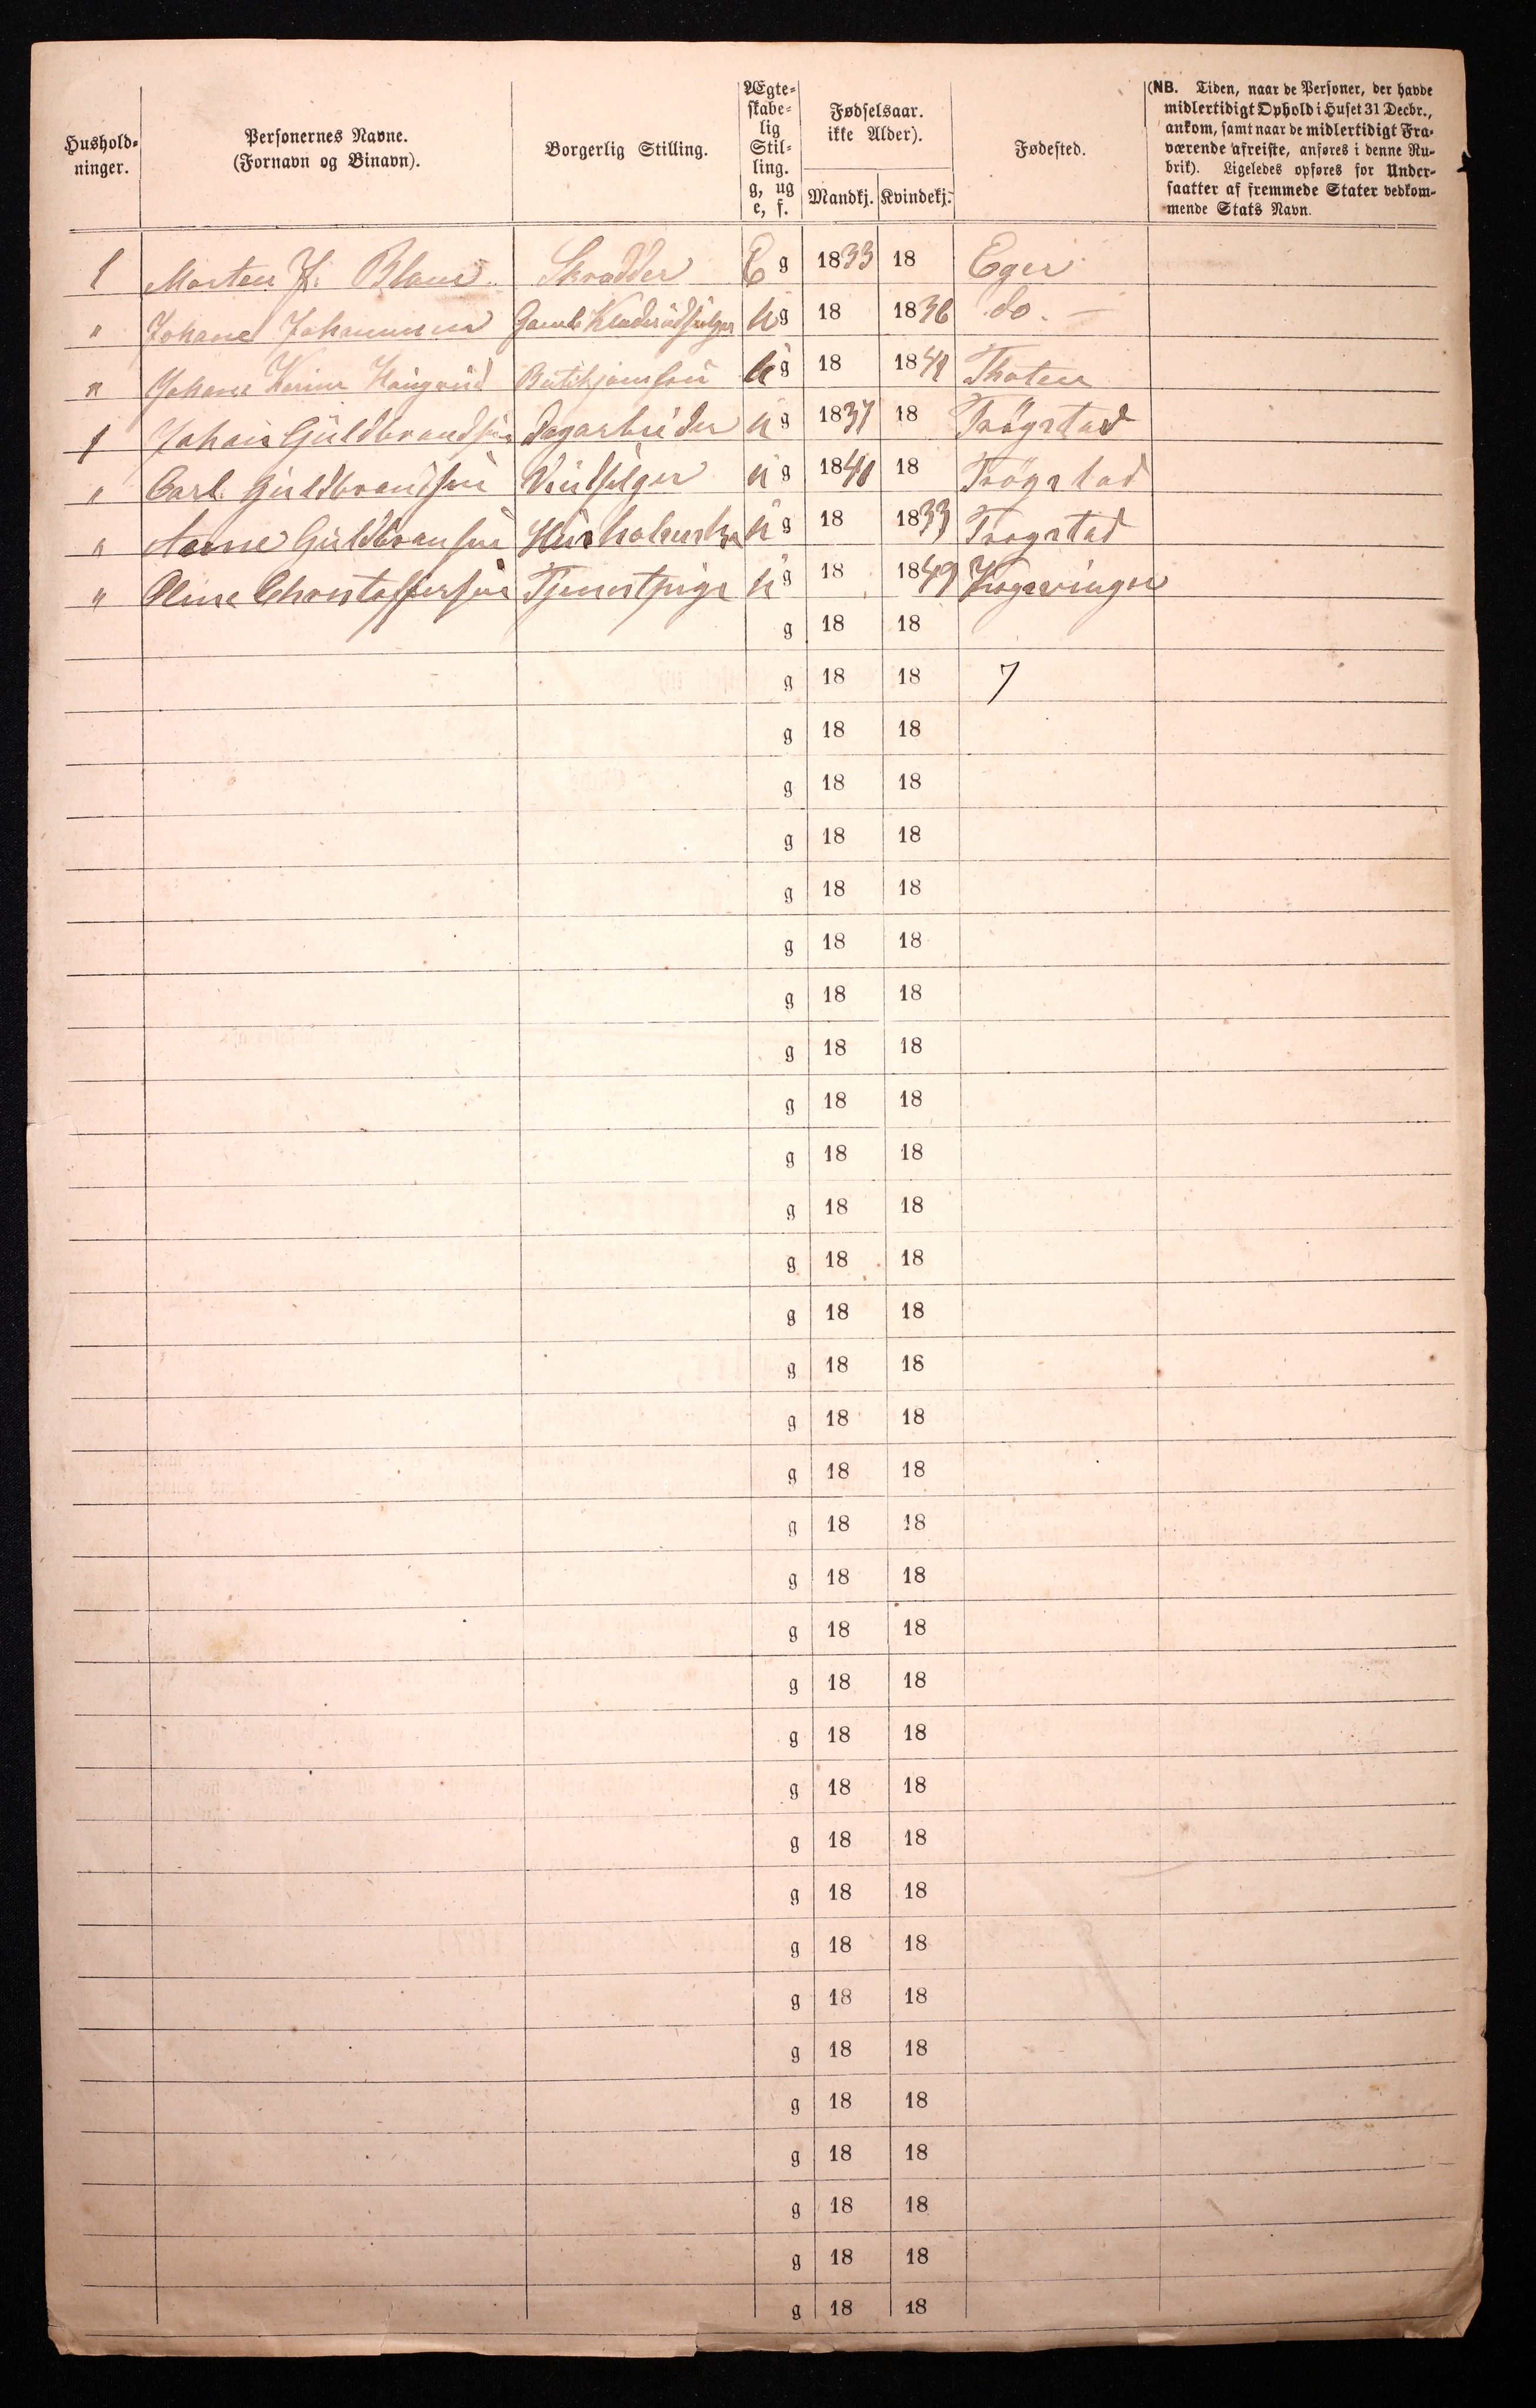 Hushold-
ninger.
Personernes Navne.
(Fornavn og Binavn).
Borgerlig Stilling.
Ægte-
skabe-
lig
Stil-
ling.
g, ug
e, f.
Fødselsaar.
ikke Alder).
Mandkj. Kvindekj.
Fødested.
(NB. Tiden, naar de Personer, der havde
midlertidigt Ophold i Huset 31 Decbr.,
ankom, samt naar de midlertidigt Fra-
værende afreiste, anføres i denne Ru-
brik). Ligeledes opføres for Under-
saatter af fremmede Stater vedkom-
mende Stats Navn.
1 Morten J. Skrædder E g 1833 18 Eger
" Johane Johannesen Gamle u g 18 1836 do. —
" Johane Karine Haugerud u g 18 Thoten
1 Johan Güldbrandsen Dagarbeider u g 1837 18 Trögstad
" Carl Güldbrandsen u g 1840 18 Trögstad
" Güldbransen u g 18 1833 Trogstad
" Oline Christoffersen Tjenestpige u g 18 1849
g 18 18
g 18 18 7
g 18 18
g 18 18
g 18 18
g 18 18
g 18 18
g 18 18
g 18 18
g 18 18
g 18 18
g 18 18
g 18 18
g 18 18
g 18 18
g 18 18
g 18 18
g 18 18
g 18 18
g 18 18
g 18 18
g 18 18
g 18 18
g 18 18
g 18 18
g 18 18
g 18 18
g 18 18
g 18 18
g 18 18
g 18 18
g 18 18
g 18 18